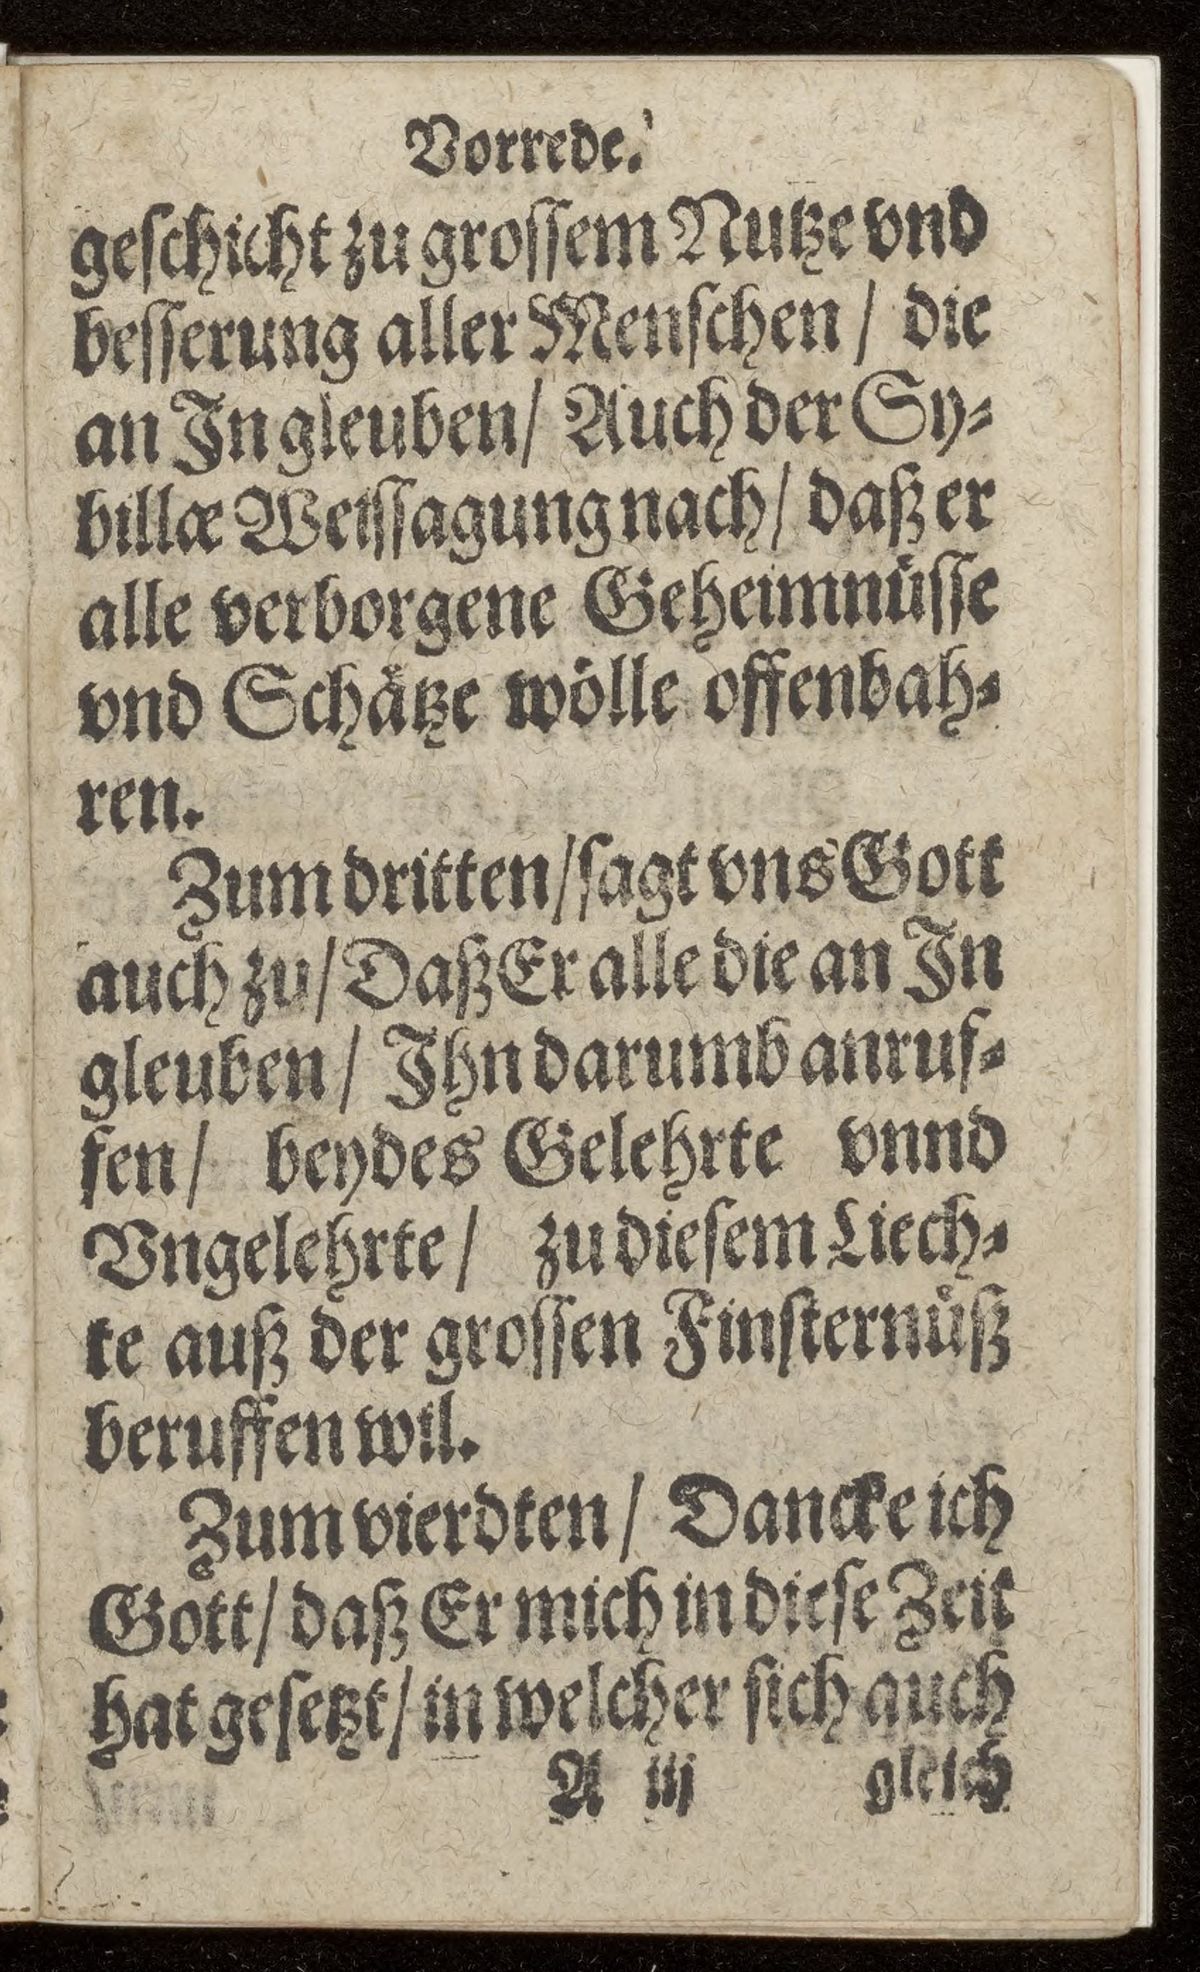 Vorrede.
geschicht zu grossem Nutze vnd
besserung aller Menschen / die
an In gleuben / Auch der Sy-
billæ Weissagung nach / daß er
alle verborgene Geheimnüsse
vnd Schätze wölle offenbah-
ren.
Zum dritten / sagt vns Gott
auch zu / Daß Er alle die an In
gleuben / Ihn darumb anruf-
fen / beydes Gelehrte vnnd
Vngelehrte / zu diesem Liech-
te auß der grossen Finsternüß
beruffen wil.
Zum vierdten / Dancke ich
Gott / daß Er mich in diese Zeit
hat gesetzt / in welcher sich auch
A iij gleich